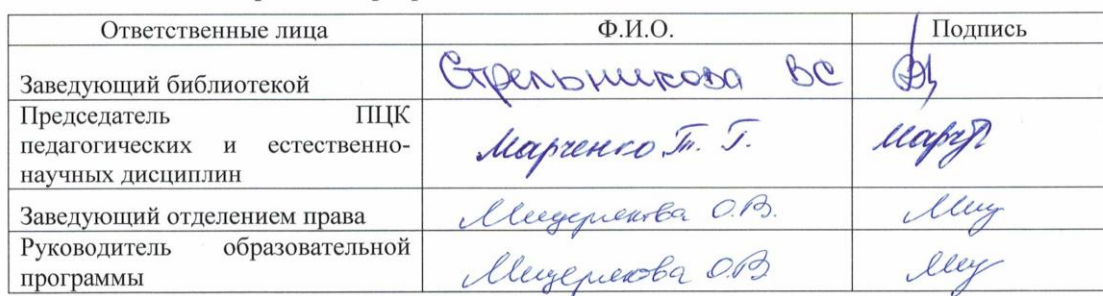 Ответственные лица Ф.И.О. Подпись
Заведующий библиотекой Стрельникова ВС
Председатель ПЦК
педагогических и естественно-
научных дисциплин Марченко Т. Г.
Заведующий отделением права Мищерякова О.В.
Руководитель образовательной
программы Мищерякова О.В